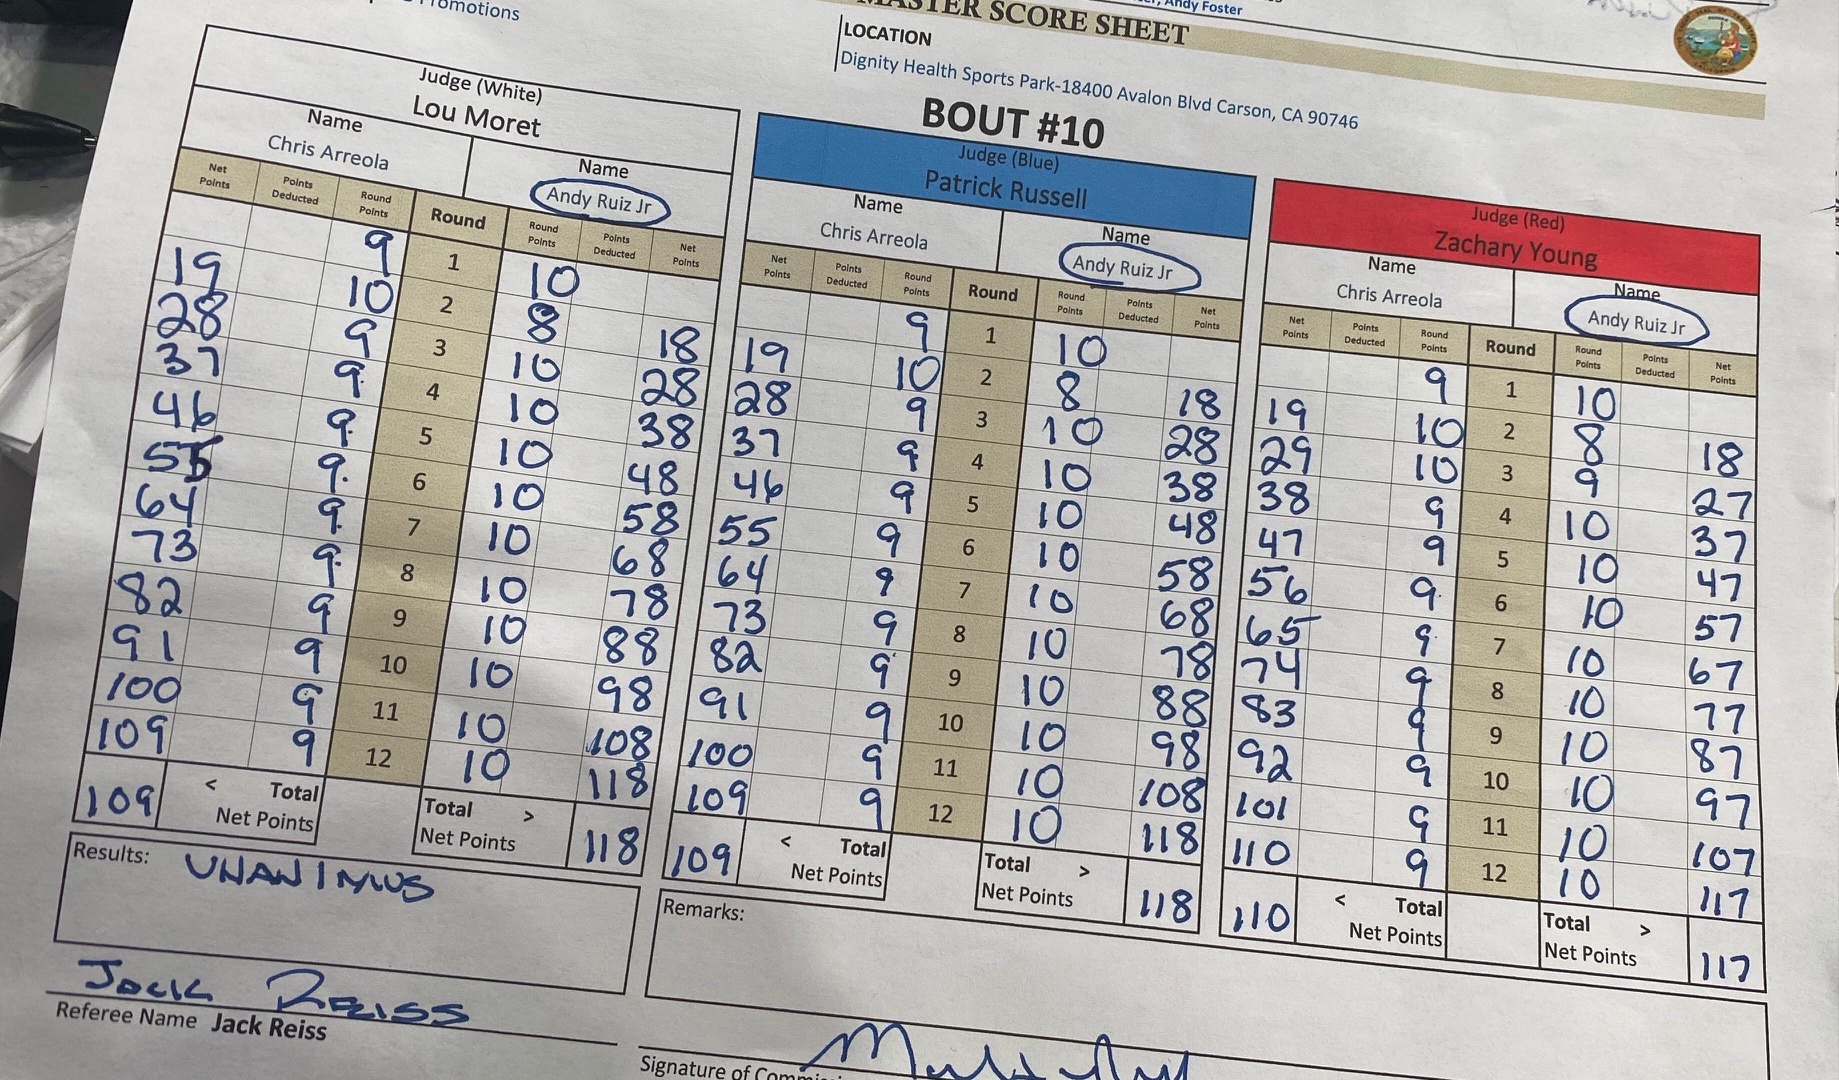 Promotions
Andy Foster
MASTER SCORE SHEET
LOCATION
Dignity Health Sports Park-18400 Avalon Blvd Carson, CA 90746
BOUT #10
Judge (White)
Lou Moret
Name Name
Chris Arreola Andy Ruiz Jr
Net Points Points Deducted Round Points Round Round Points Points Deducted Net Points
9 1 10
19 10 2 8 18
28 9 3 10 28
37 9 4 10 38
46 9 5 10 48
55 9 6 10 58
64 9 7 10 68
73 9 8 10 78
82 9 9 10 88
91 9 10 10 98
100 9 11 10 108
109 9 12 10 118
109 < Total Net Points Total > Net Points 118
Judge (Blue)
Patrick Russell
Name Name
Chris Arreola Andy Ruiz Jr
Net Points Points Deducted Round Points Round Round Points Points Deducted Net Points
9 1 10
19 10 2 8 18
28 9 3 10 28
37 9 4 10 38
46 9 5 10 48
55 9 6 10 58
64 9 7 10 68
73 9 8 10 78
82 9 9 10 88
91 9 10 10 98
100 9 11 10 108
109 9 12 10 118
109 < Total Net Points Total > Net Points 118
Judge (Red)
Zachary Young
Name Name
Chris Arreola Andy Ruiz Jr
Net Points Points Deducted Round Points Round Round Points Points Deducted Net Points
9 1 10
19 10 2 8 18
29 10 3 9 27
38 9 4 10 37
47 9 5 10 47
56 9 6 10 57
65 9 7 10 67
74 9 8 10 77
83 9 9 10 87
92 9 10 10 97
101 9 11 10 107
110 9 12 10 117
110 < Total Net Points Total > Net Points 117
Results: UNANIMUS
Remarks:
Jack REISS
Referee Name Jack Reiss
Signature of